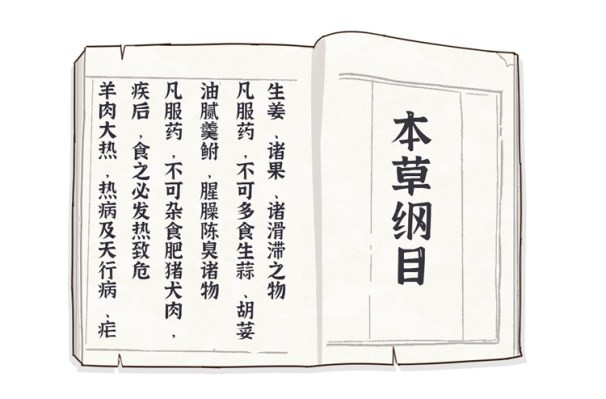 羊肉大热，热病及天行病、疟
疾后，食之必发热致危
凡服药，不可杂食肥猪犬肉，
油腻羹鲋，腥臊陈臭诸物
凡服药，不可多食生蒜、胡荽
生姜、诸果、诸滑滞之物
本草纲目